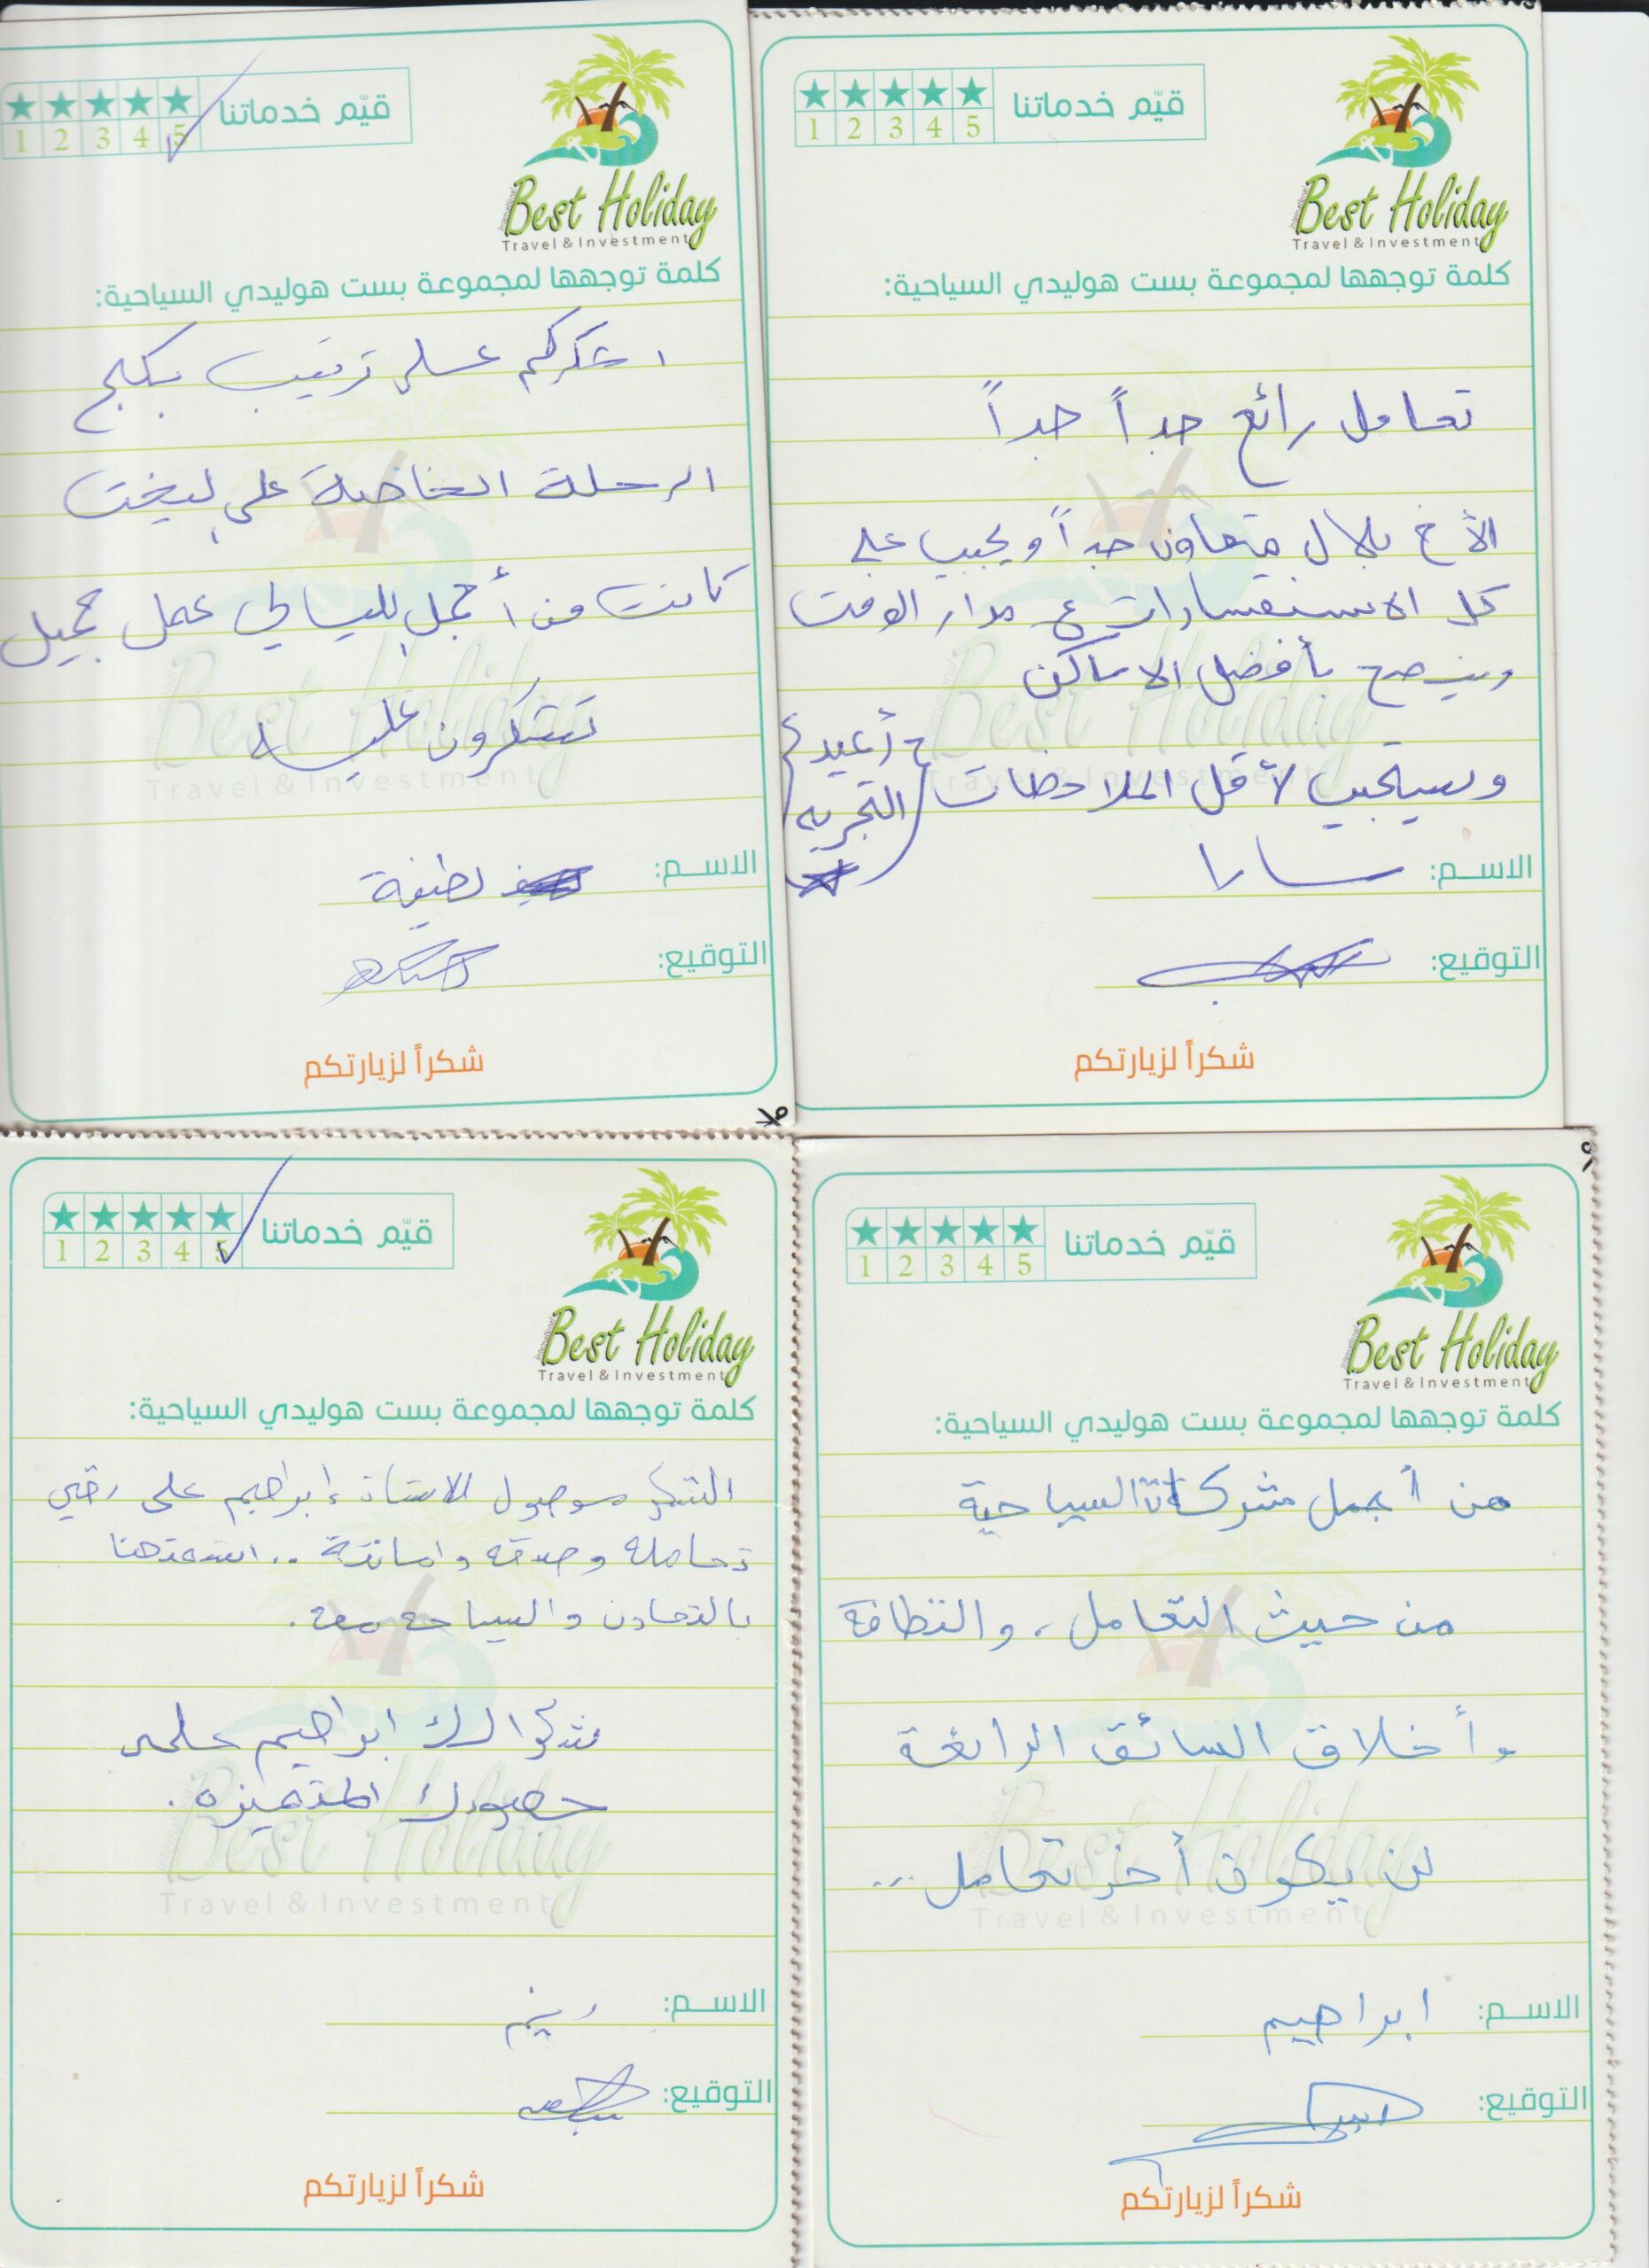 قيّم خدماتنا
1 2 3 4 5
Best Holiday
Travel & Investment
كلمة توجهها لمجموعة بست هوليدي السياحية:
تعامل رائع جداً جداً
الأخ بلال متعاون جداً ويجيب على
كل الاستفسارات ع مدار الوقت
وينصح بأفضل الاماكن
ويستجيب لأقل الملاحظات
أعيد
التجربه
الاسم: سارا
التوقيع:
شكراً لزيارتكم
قيّم خدماتنا
1 2 3 4 5
Best Holiday
Travel & Investment
كلمة توجهها لمجموعة بست هوليدي السياحية:
اشكركم على ترتيب بكج
الرحلة الخاصة على ليخت
كانت من أجمل لليالي عمل جميل
تشكرون عليه
الاسم: لطيفة
التوقيع:
شكراً لزيارتكم
قيّم خدماتنا
1 2 3 4 5
Best Holiday
Travel & Investment
كلمة توجهها لمجموعة بست هوليدي السياحية:
من أجمل شركات السياحية
من حيث التعامل، والنظافة
وأخلاق السائق الرائعة
لن يكون أخر تعامل...
الاسم: ابراهيم
التوقيع:
شكراً لزيارتكم
قيّم خدماتنا
1 2 3 4 5
Best Holiday
Travel & Investment
كلمة توجهها لمجموعة بست هوليدي السياحية:
الشكر موصول للاستاذ إبراهيم على رقي
تعامله وصدقه وامانته .. استمتعنا
بالتعاون والسياحه معه.
شكرا لك ابراهيم على
جهودك المتميزه.
الاسم: ريم
التوقيع:
شكراً لزيارتكم